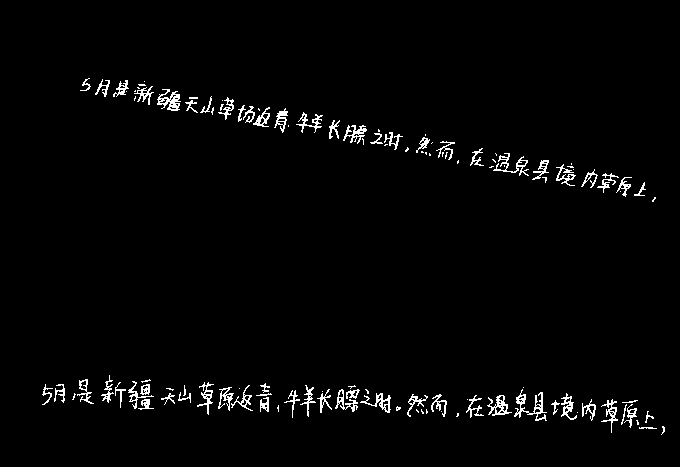 5月是新疆天山草场返青、牛羊长膘之时,然而,在温泉县境内草原上,
5月是新疆天山草原返青、牛羊长膘之时。然而,在温泉县境内草原上,